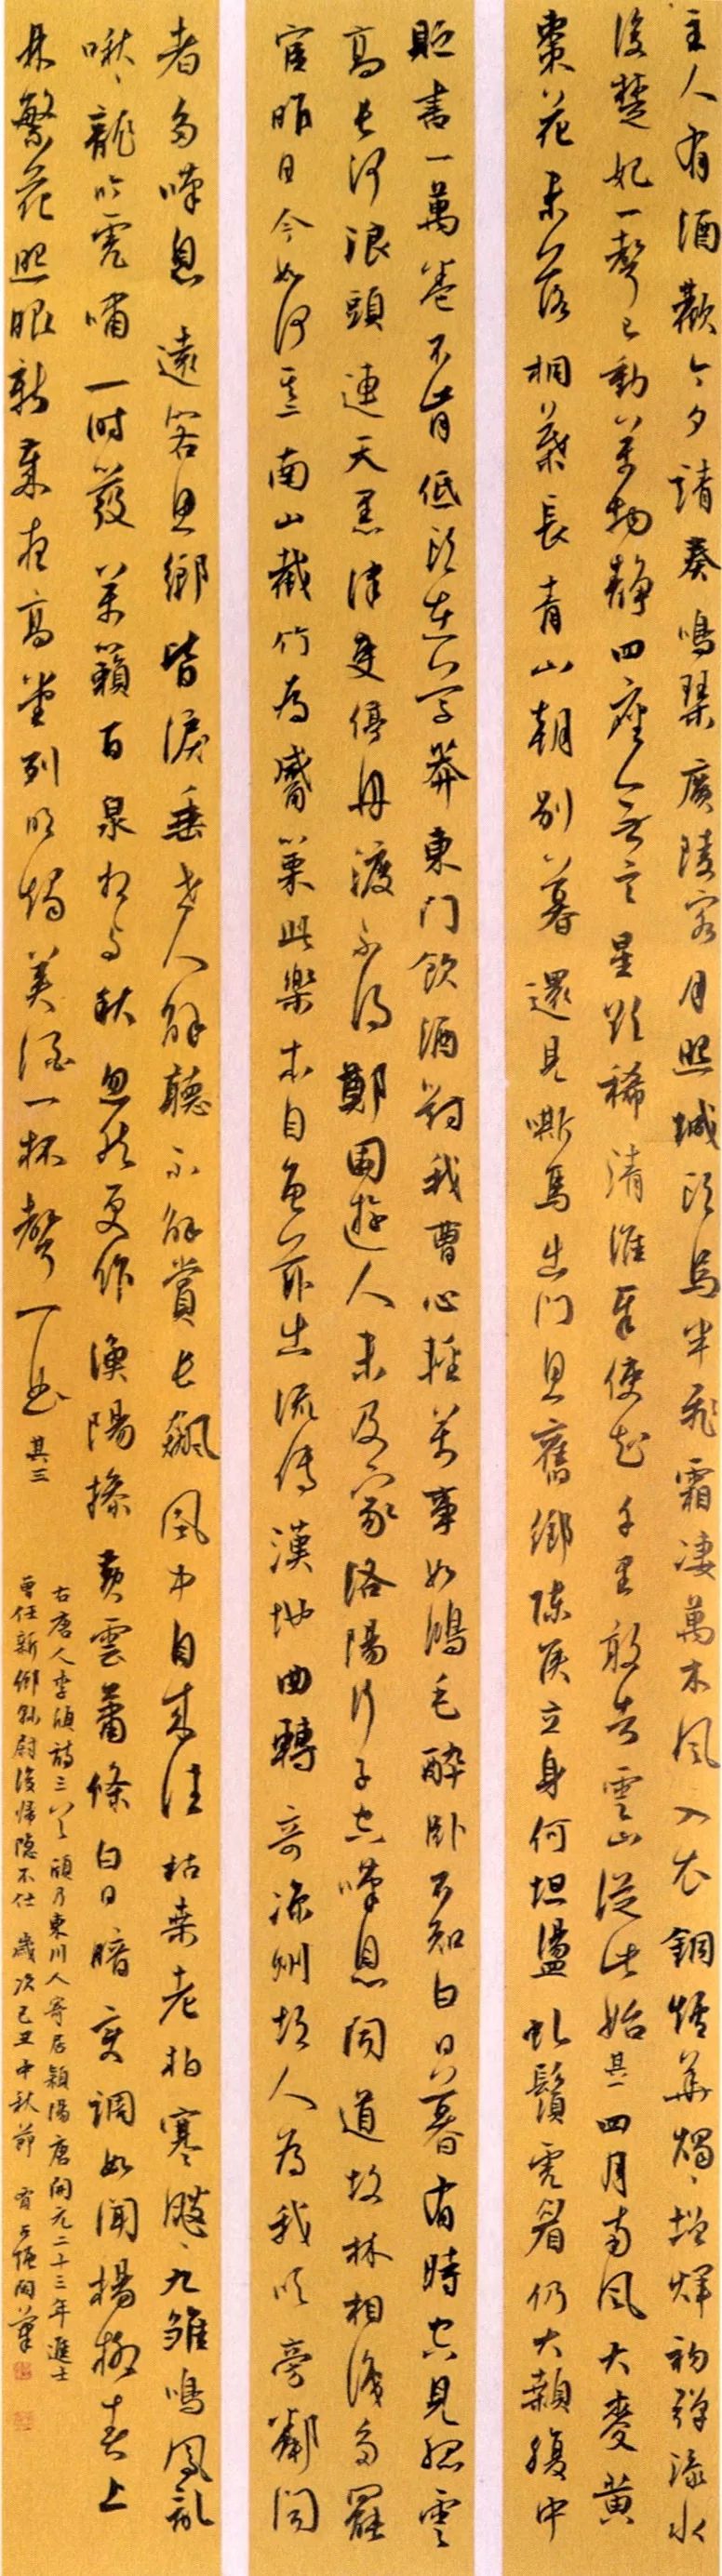 主人有酒歡今夕請奏鳴琴廣陵客月照城頭烏半飛霜凄萬木風入衣銅爐華燭燭增輝初彈淥水
後楚妃一聲已動萬物靜四座無言星欲稀清淮奉使千里敢告雲山從此始其一四月南風大麥黃
棗花未落桐葉長青山朝別暮還見嘶馬出門思舊鄉陳侯立身何坦蕩虬鬚虎眉仍大顙腹中
貯書一萬卷不肯低頭在草莽東門飲酒對我曹心輕萬事如鴻毛醉臥不知白日暮有時空見孤雲
高長河浪頭連天黑津吏停舟渡不得鄭國遊人未及家洛陽行子空嘆息聞道故林相識多罷
官昨日今如何其二南山截竹為觱篥此樂本自龜茲出流傳漢地曲轉奇涼州胡人為我吹旁鄰聞
者多嘆息遠客思鄉皆淚垂世人解聽不解賞長飆風中自來往枯桑老柏寒颼颼九雛鳴鳳亂
啾啾龍吟虎嘯一時發萬籟百泉相與秋忽然更作漁陽摻黃雲蕭條白日暗變調如聞楊柳春上
林繁花照眼新歲夜高堂列明燭美酒一杯聲一曲其三
右唐人李頎詩三首頎乃東川人寄居潁陽唐開元二十三年進士
曾任新鄉縣尉後歸隱不仕歲次己丑中秋節